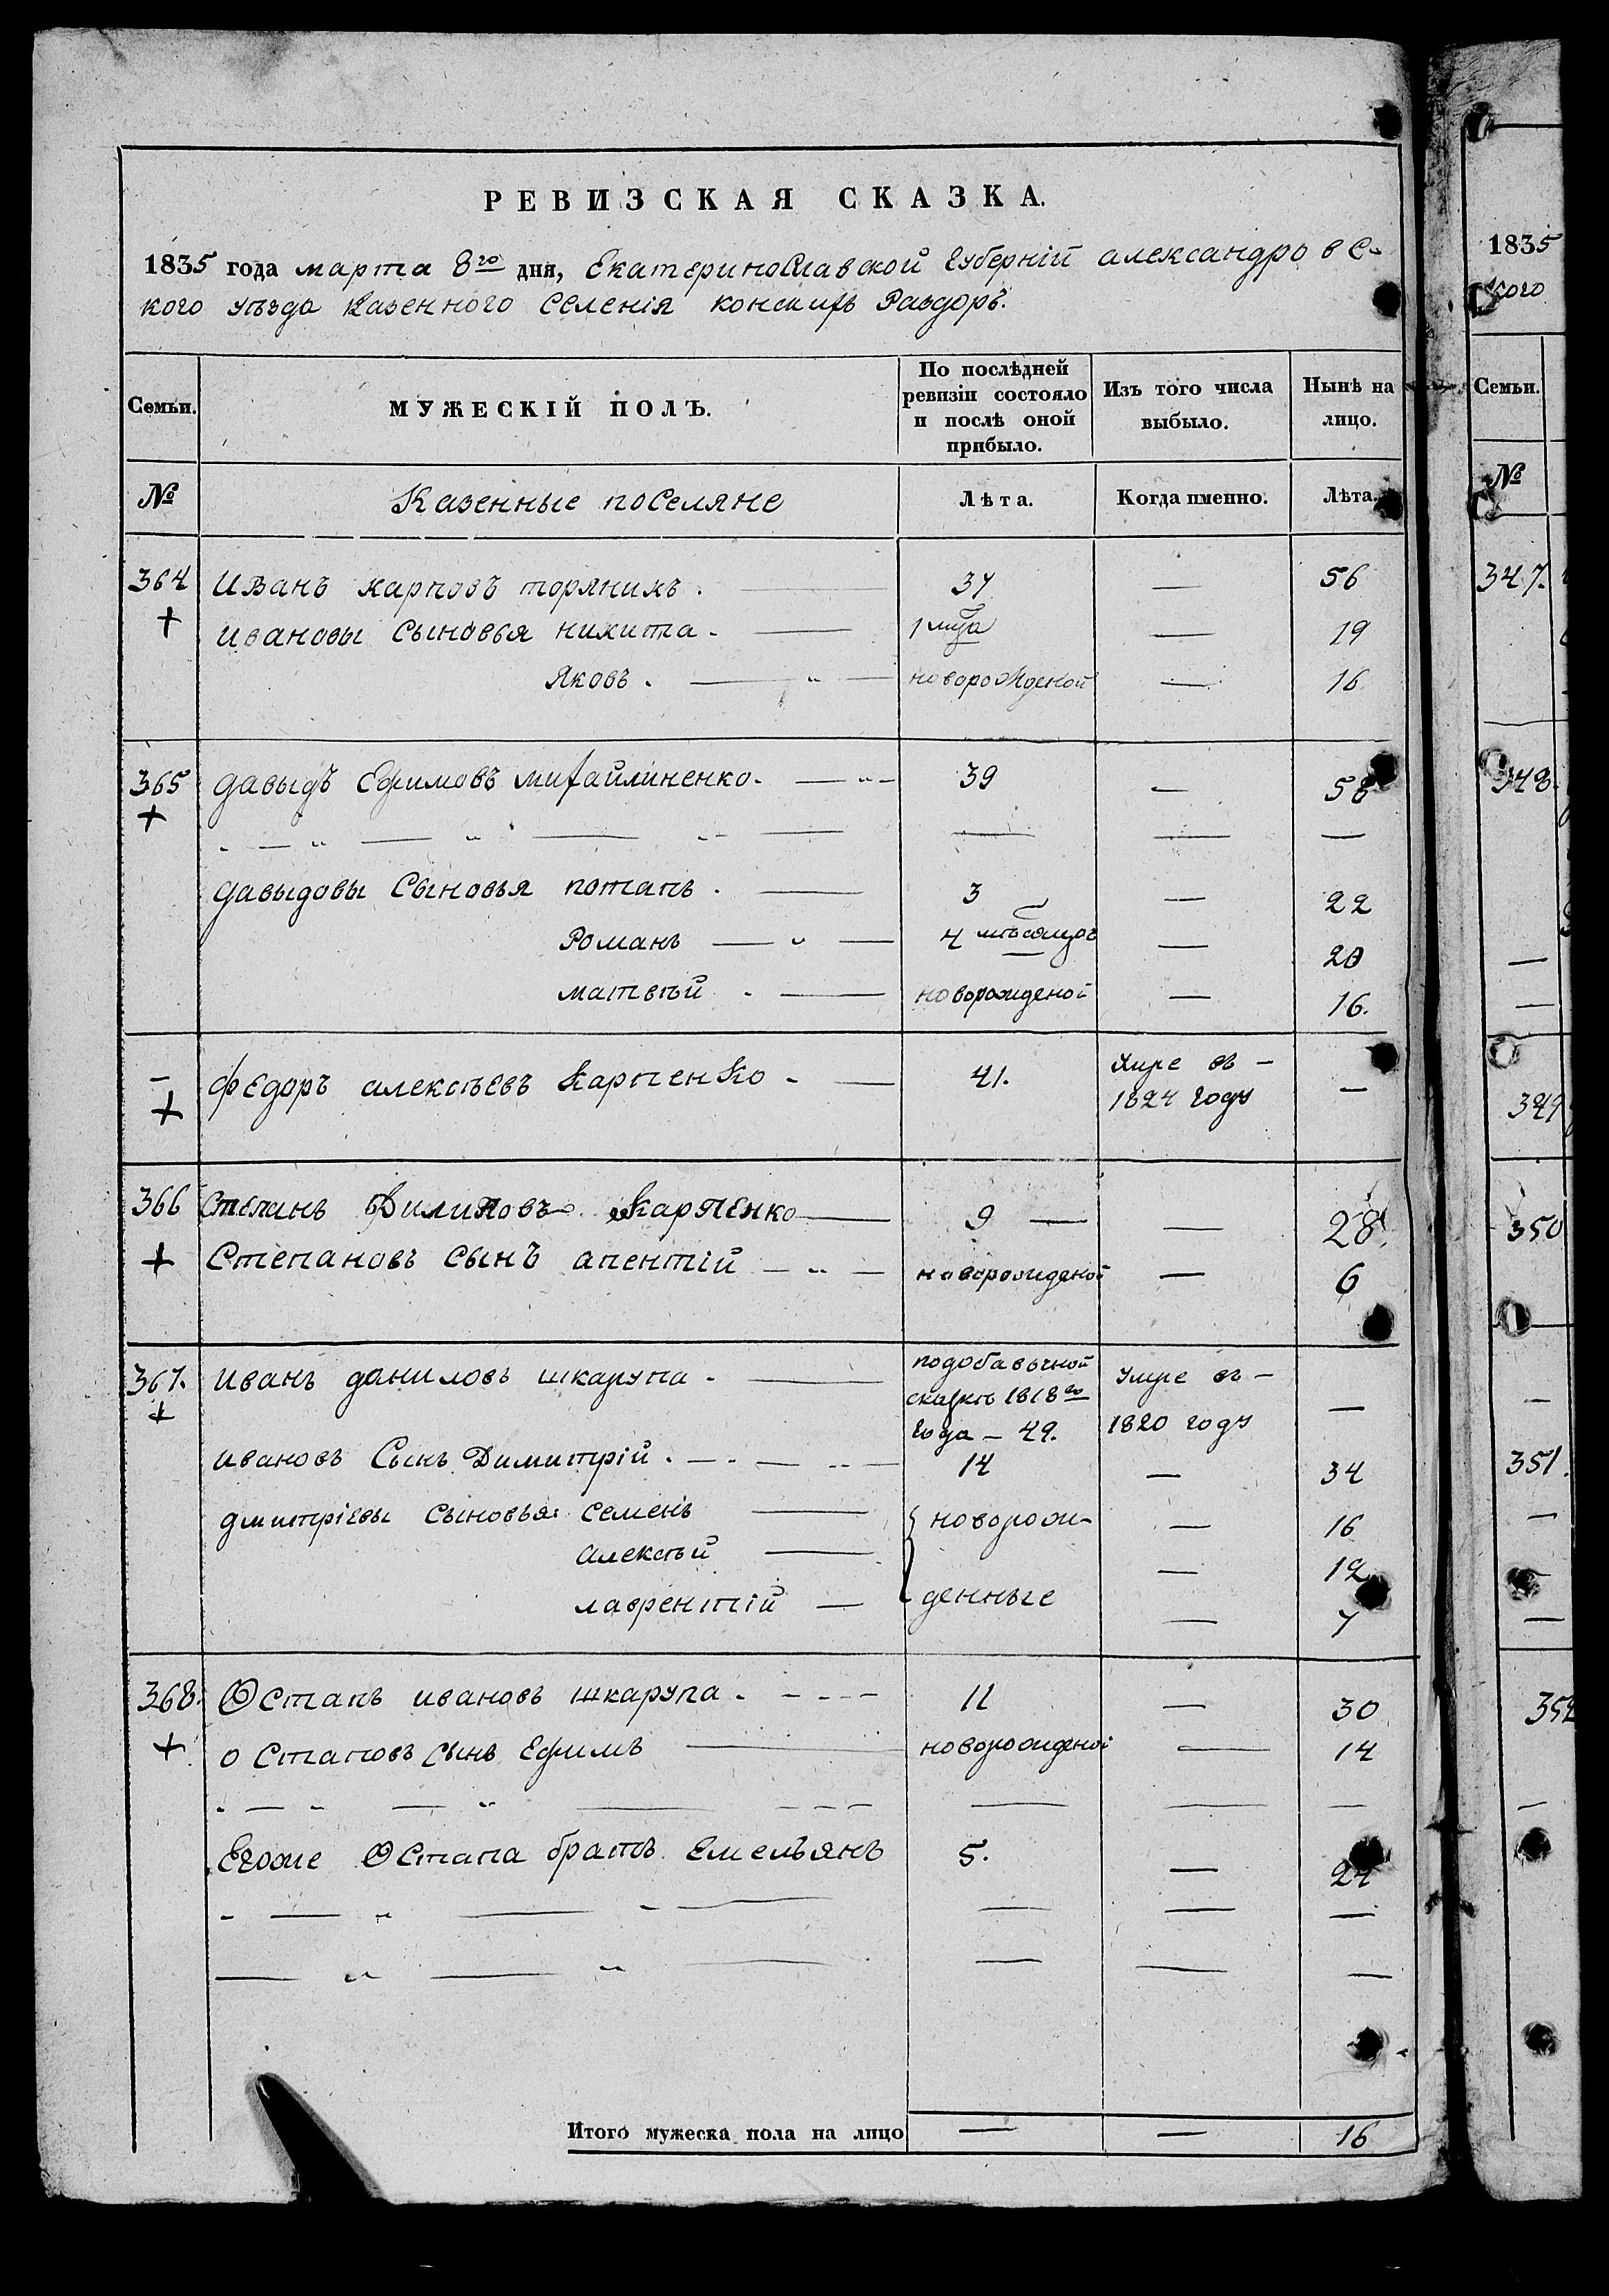 РЕВИЗСКАЯ СКАЗКА.
1835 года марта 8го дня, Екатеринославской Губерніи александровс-
кого уѣзда Казенного Селенія конскихъ Раздоръ.
Семьи. МУЖЕСКІЙ ПОЛЪ. По послѣдней ревизіи состояло и послѣ оной прибыло. Изъ того числа выбыло. Нынѣ на лицо.
№ Казенные поселяне Лѣта. Когда именно. Лѣта.
364 Иванъ карповъ торяникъ. — 37 — 56
+ ивановы Сыновья никита. — 1 — 19
Яковъ. — новорожденой — 16
365 давыдъ Ефимовъ михайлиненко. — 39 — 58
+
давыдовы Сыновья потапъ. — 3 — 22
Романъ — 4 мѣсяцовъ — 20
матвѣй. — новорожденой — 16.
— федоръ алексѣевъ Карпенко — 41. Умре въ — —
+ 1824 году
366 Степанъ Филиповъ Карпенко — 9 — — 28
+ Степановъ сынъ апентій — новорожденой — 6
367. иванъ даниловъ шкарупа. — подобавочной Умре въ — —
+ скаскѣ 1818го 1820 году
Года — 49.
ивановъ Сынъ Димитрій. — 14 — 34
дмитріевы сыновья: семенъ — новорож- — 16
алексѣй — — 12
лаврентій — денные — 7
368. Остапъ ивановъ шкарупа. — 11 — 30
+ остаповъ сынъ Ефимъ — новорожденой — 14
Егоже Остапа братъ Емельянъ 5. — 24
Итого мужеска пола на лицо — — 16
1835
кого
Семьи.
№
347.
348.
349
350
351.
352